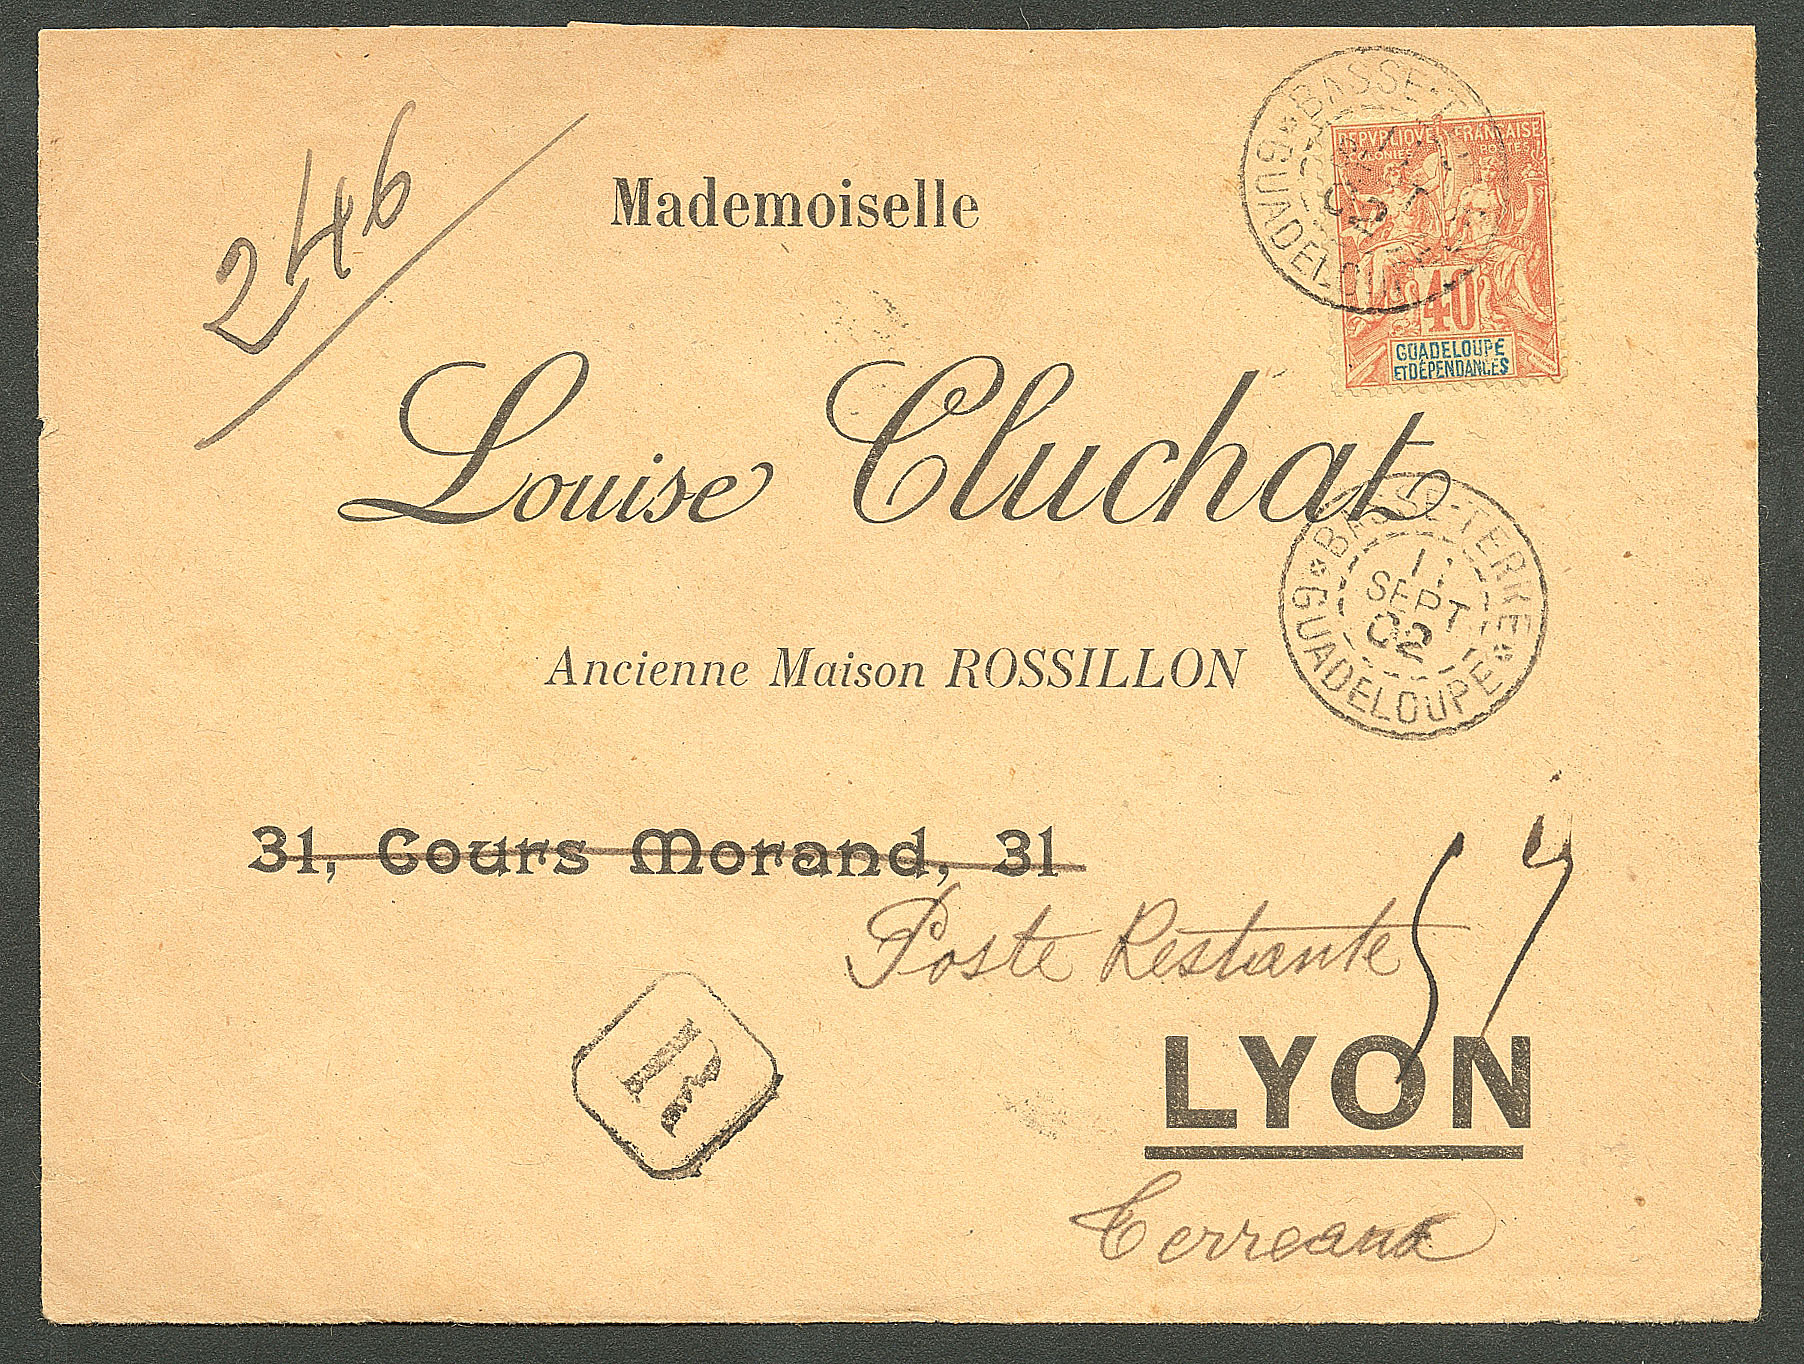 246
Mademoiselle
BASSE-T
GUADELOUP
02
REPVBLIQVE FRANÇAISE
COLONIES POSTES
40
GUADELOUPE
ET DÉPENDANCES
Louise Cluchat
BASSE-TERRE
11
SEPT
02
GUADELOUPE
Ancienne Maison ROSSILLON
31, Cours Morand, 31
Poste Restante
R
LYON
Terreaux